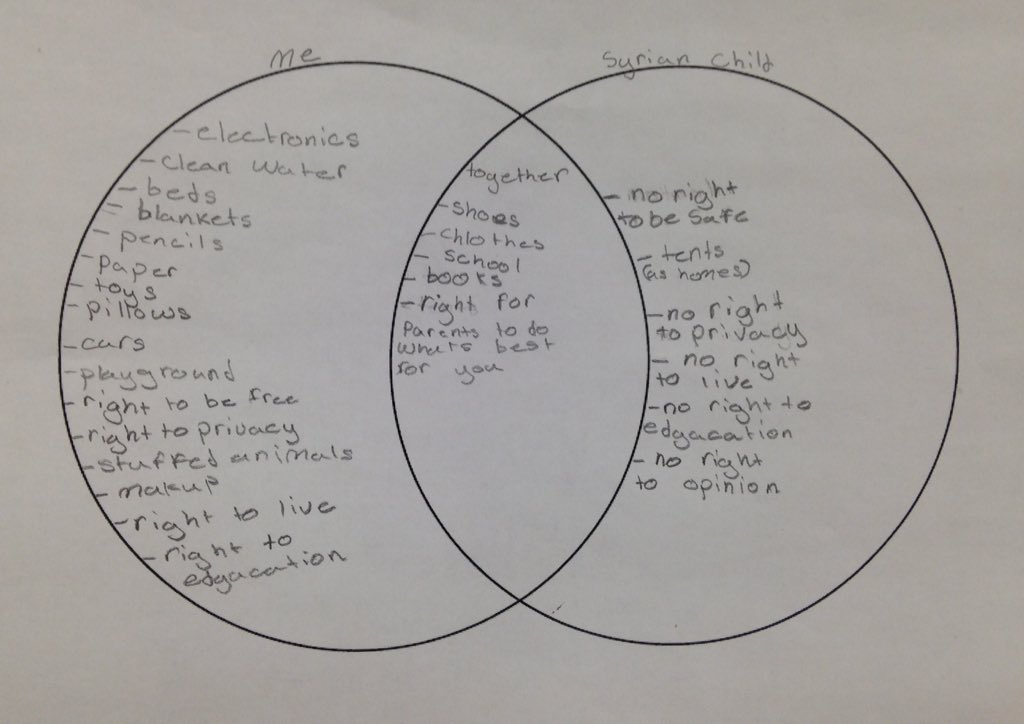 me
- electronics
- clean water
- beds
- blankets
- pencils
- paper
- toys
- pillows
- cars
- playground
- right to be free
- right to privacy
- stuffed animals
- makeup
- right to live
- right to
edgacation
together
- shoes
- chlothes
- school
- books
- right for
Parents to do
whats best
for you
Syrian Child
- no right
to be safe
- tents
(as homes)
- no right
to privacy
- no right
to live
- no right to
edgacation
- no right
to opinion